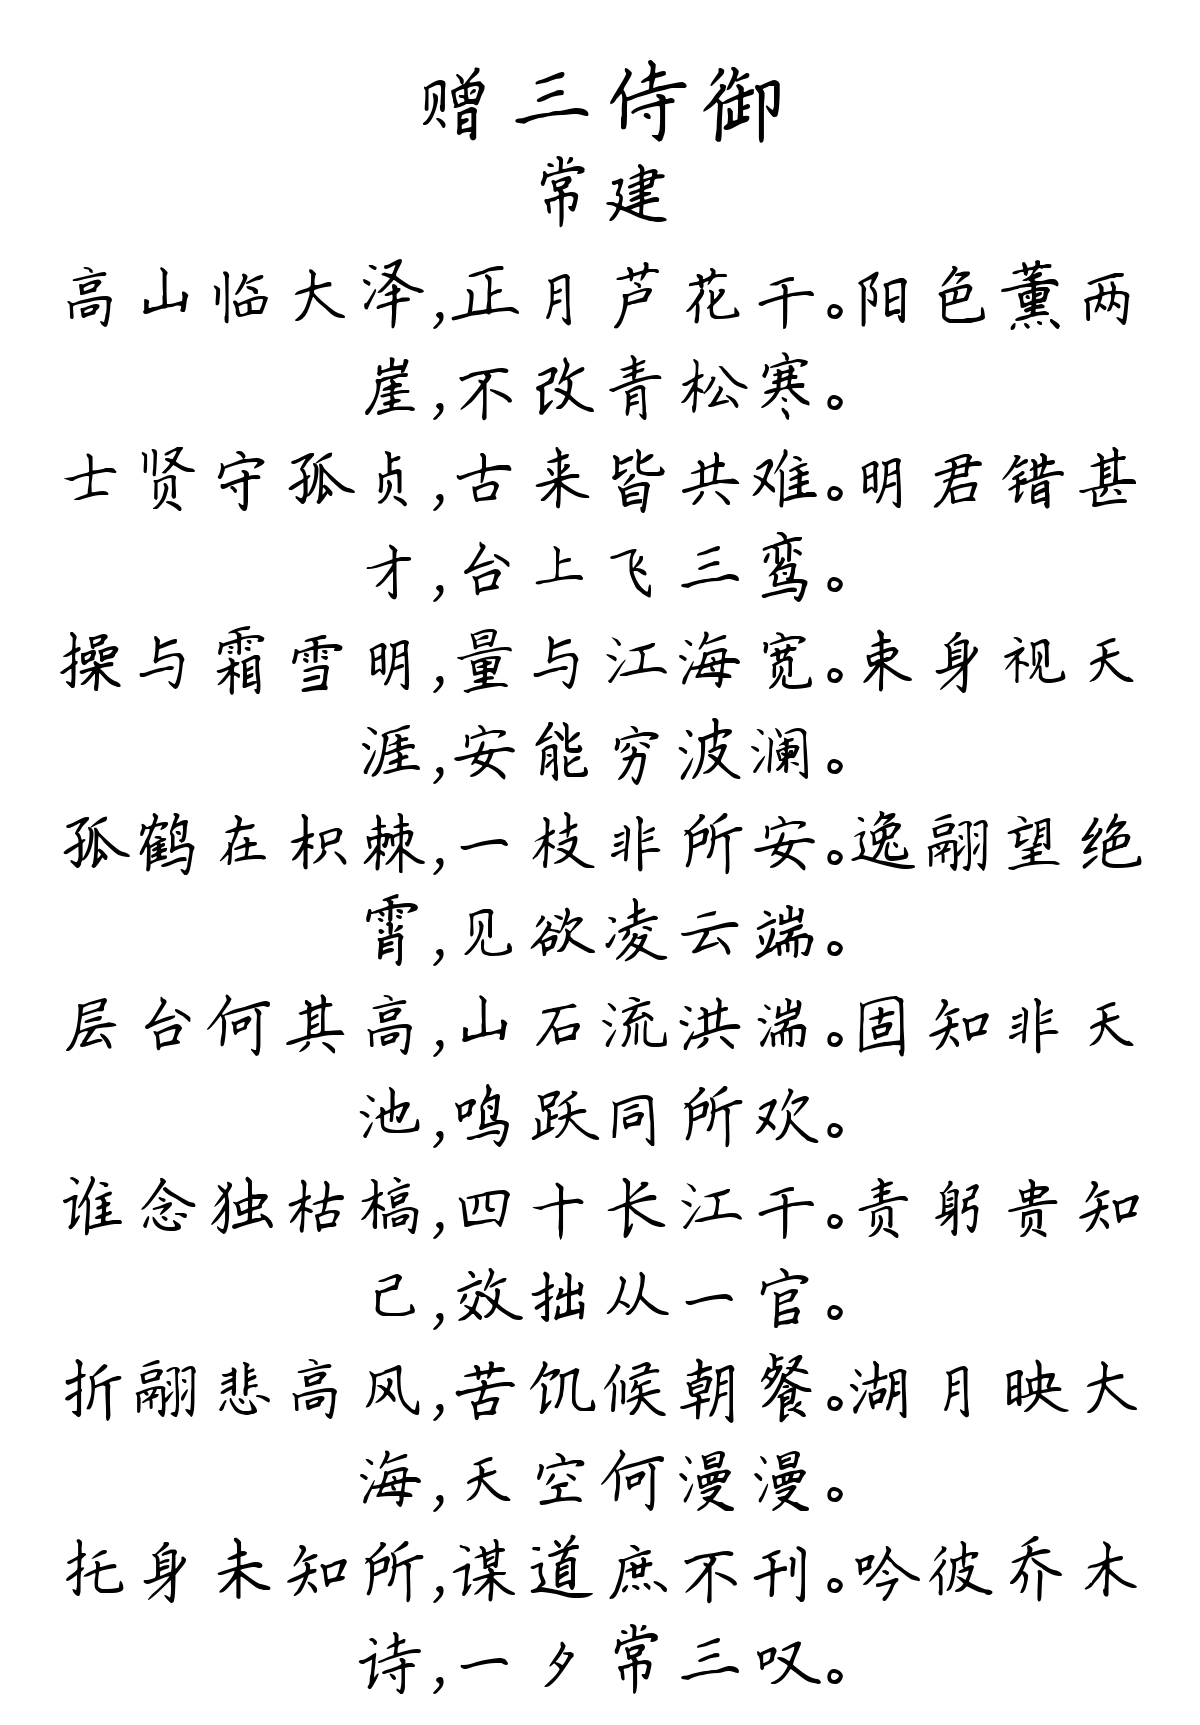 赠三侍御
常建
高山临大泽,正月芦花干。阳色薰两
崖,不改青松寒。
士贤守孤贞,古来皆共难。明君错甚
才,台上飞三鸾。
操与霜雪明,量与江海宽。束身视天
涯,安能穷波澜。
孤鹤在枳棘,一枝非所安。逸翮望绝
霄,见欲凌云端。
层台何其高,山石流洪湍。固知非天
池,鸣跃同所欢。
谁念独枯槁,四十长江干。责躬贵知
己,效拙从一官。
折翮悲高风,苦饥候朝餐。湖月映大
海,天空何漫漫。
托身未知所,谋道庶不刊。吟彼乔木
诗,一夕常三叹。